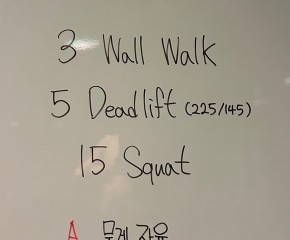 3 Wall Walk
5 Deadlift (225/145)
15 Squat
A 무게 자유